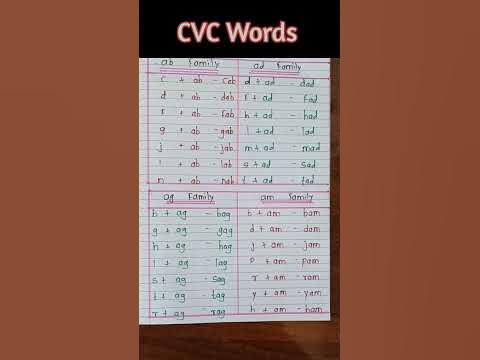 CVC Words
ab Family
c + ab - cab
d + ab - dab
+ ab -
g + ab - gab
j + ab - jab
l + ab - lab
n + ab - nab
ad Family
d + ad - dad
f + ad - fad
h + ad - had
l + ad - lad
m + ad - mad
s + ad - sad
t + ad - tad
ag Family
b + ag - bag
g + ag - gag
h + ag - hag
l + ag - lag
s + ag - sag
t + ag - tag
r + ag - rag
am Family
b + am - bam
d + am - dam
j + am - jam
p + am - pam
r + am - ram
y + am - yam
h + am - ham